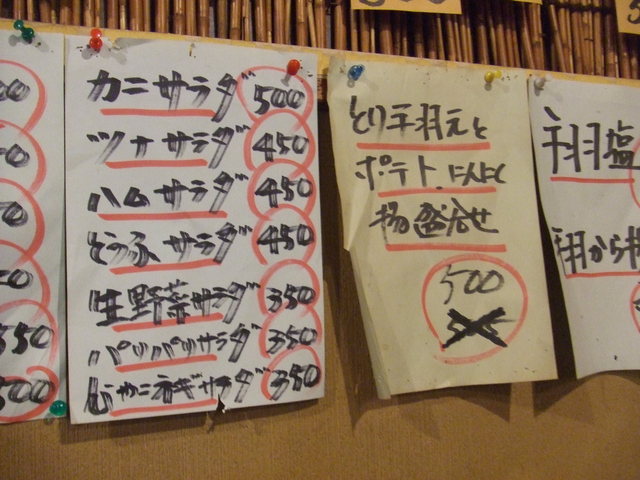 カニサラダ 500
ツナサラダ 450
ハムサラダ 450
とうふサラダ 450
生野菜サラダ 350
パリパリサラダ 350
じゃこネギサラダ 350
とり手羽元と
ポテト、にんにく
揚盛合せ
500
手羽塩
手羽から揚
550
500